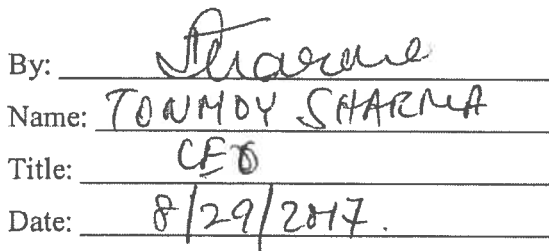 By: Sharma
Name: TONMOY SHARMA
Title: CEO
Date: 8/29/2017.